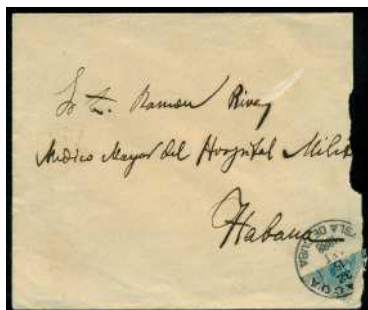 Sr. D. Ramon Rivey
Medico Mayor del Hospital Milit
Habana
ISLA DE CUBA